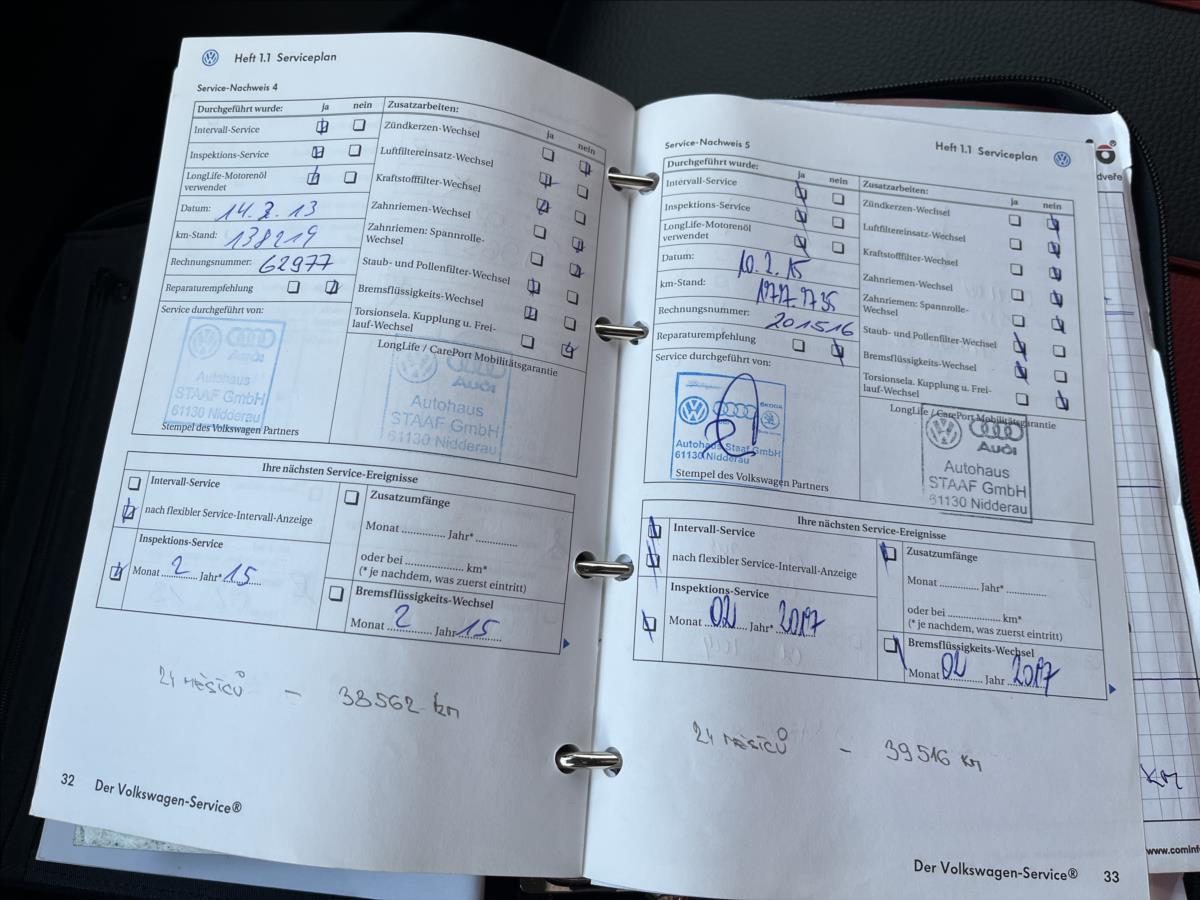 Heft 1.1 Serviceplan
Service-Nachweis 4
Durchgeführt wurde: ja nein
Intervall-Service
Inspektions-Service
LongLife-Motorenöl
verwendet
Datum: 14.2.13
km-Stand: 138219
Rechnungsnummer: 62977
Reparaturempfehlung
Service durchgeführt von:
Audi
Autohaus
STAAF GmbH
61130 Nidderau
Stempel des Volkswagen Partners
Zusatzarbeiten: ja nein
Zündkerzen-Wechsel
Luftfiltereinsatz-Wechsel
Kraftstofffilter-Wechsel
Zahnriemen-Wechsel
Zahnriemen: Spannrolle-
Wechsel
Staub- und Pollenfilter-Wechsel
Bremsflüssigkeits-Wechsel
Torsionsela. Kupplung u. Frei-
lauf-Wechsel
LongLife / CarePort Mobilitätsgarantie
Audi
Autohaus
STAAF GmbH
61130 Nidderau
Ihre nächsten Service-Ereignisse
Intervall-Service
nach flexibler Service-Intervall-Anzeige
Inspektions-Service
Monat 2 Jahr* 15
Zusatzumfänge
Monat Jahr*
oder bei km*
(* je nachdem, was zuerst eintritt)
Bremsflüssigkeits-Wechsel
Monat 2 Jahr 15
24 MĚSÍCŮ – 38562 km
32 Der Volkswagen-Service®
Heft 1.1 Serviceplan
Service-Nachweis 5
Durchgeführt wurde: ja nein
Intervall-Service
Inspektions-Service
LongLife-Motorenöl
verwendet
Datum: 10.2.15
km-Stand:
Rechnungsnummer: 201516
Reparaturempfehlung
Service durchgeführt von:
ŠKODA
Autohaus Staaf GmbH
61130 Nidderau
Stempel des Volkswagen Partners
Zusatzarbeiten: ja nein
Zündkerzen-Wechsel
Luftfiltereinsatz-Wechsel
Kraftstofffilter-Wechsel
Zahnriemen-Wechsel
Zahnriemen: Spannrolle-
Wechsel
Staub- und Pollenfilter-Wechsel
Bremsflüssigkeits-Wechsel
Torsionsela. Kupplung u. Frei-
lauf-Wechsel
LongLife / CarePort Mobilitätsgarantie
Audi
Autohaus
STAAF GmbH
61130 Nidderau
Ihre nächsten Service-Ereignisse
Intervall-Service
nach flexibler Service-Intervall-Anzeige
Inspektions-Service
Monat 02 Jahr* 2017
Zusatzumfänge
Monat Jahr*
oder bei km*
(* je nachdem, was zuerst eintritt)
Bremsflüssigkeits-Wechsel
Monat 02 Jahr 2017
24 MĚSÍCŮ – 39516 km
Der Volkswagen-Service® 33
km